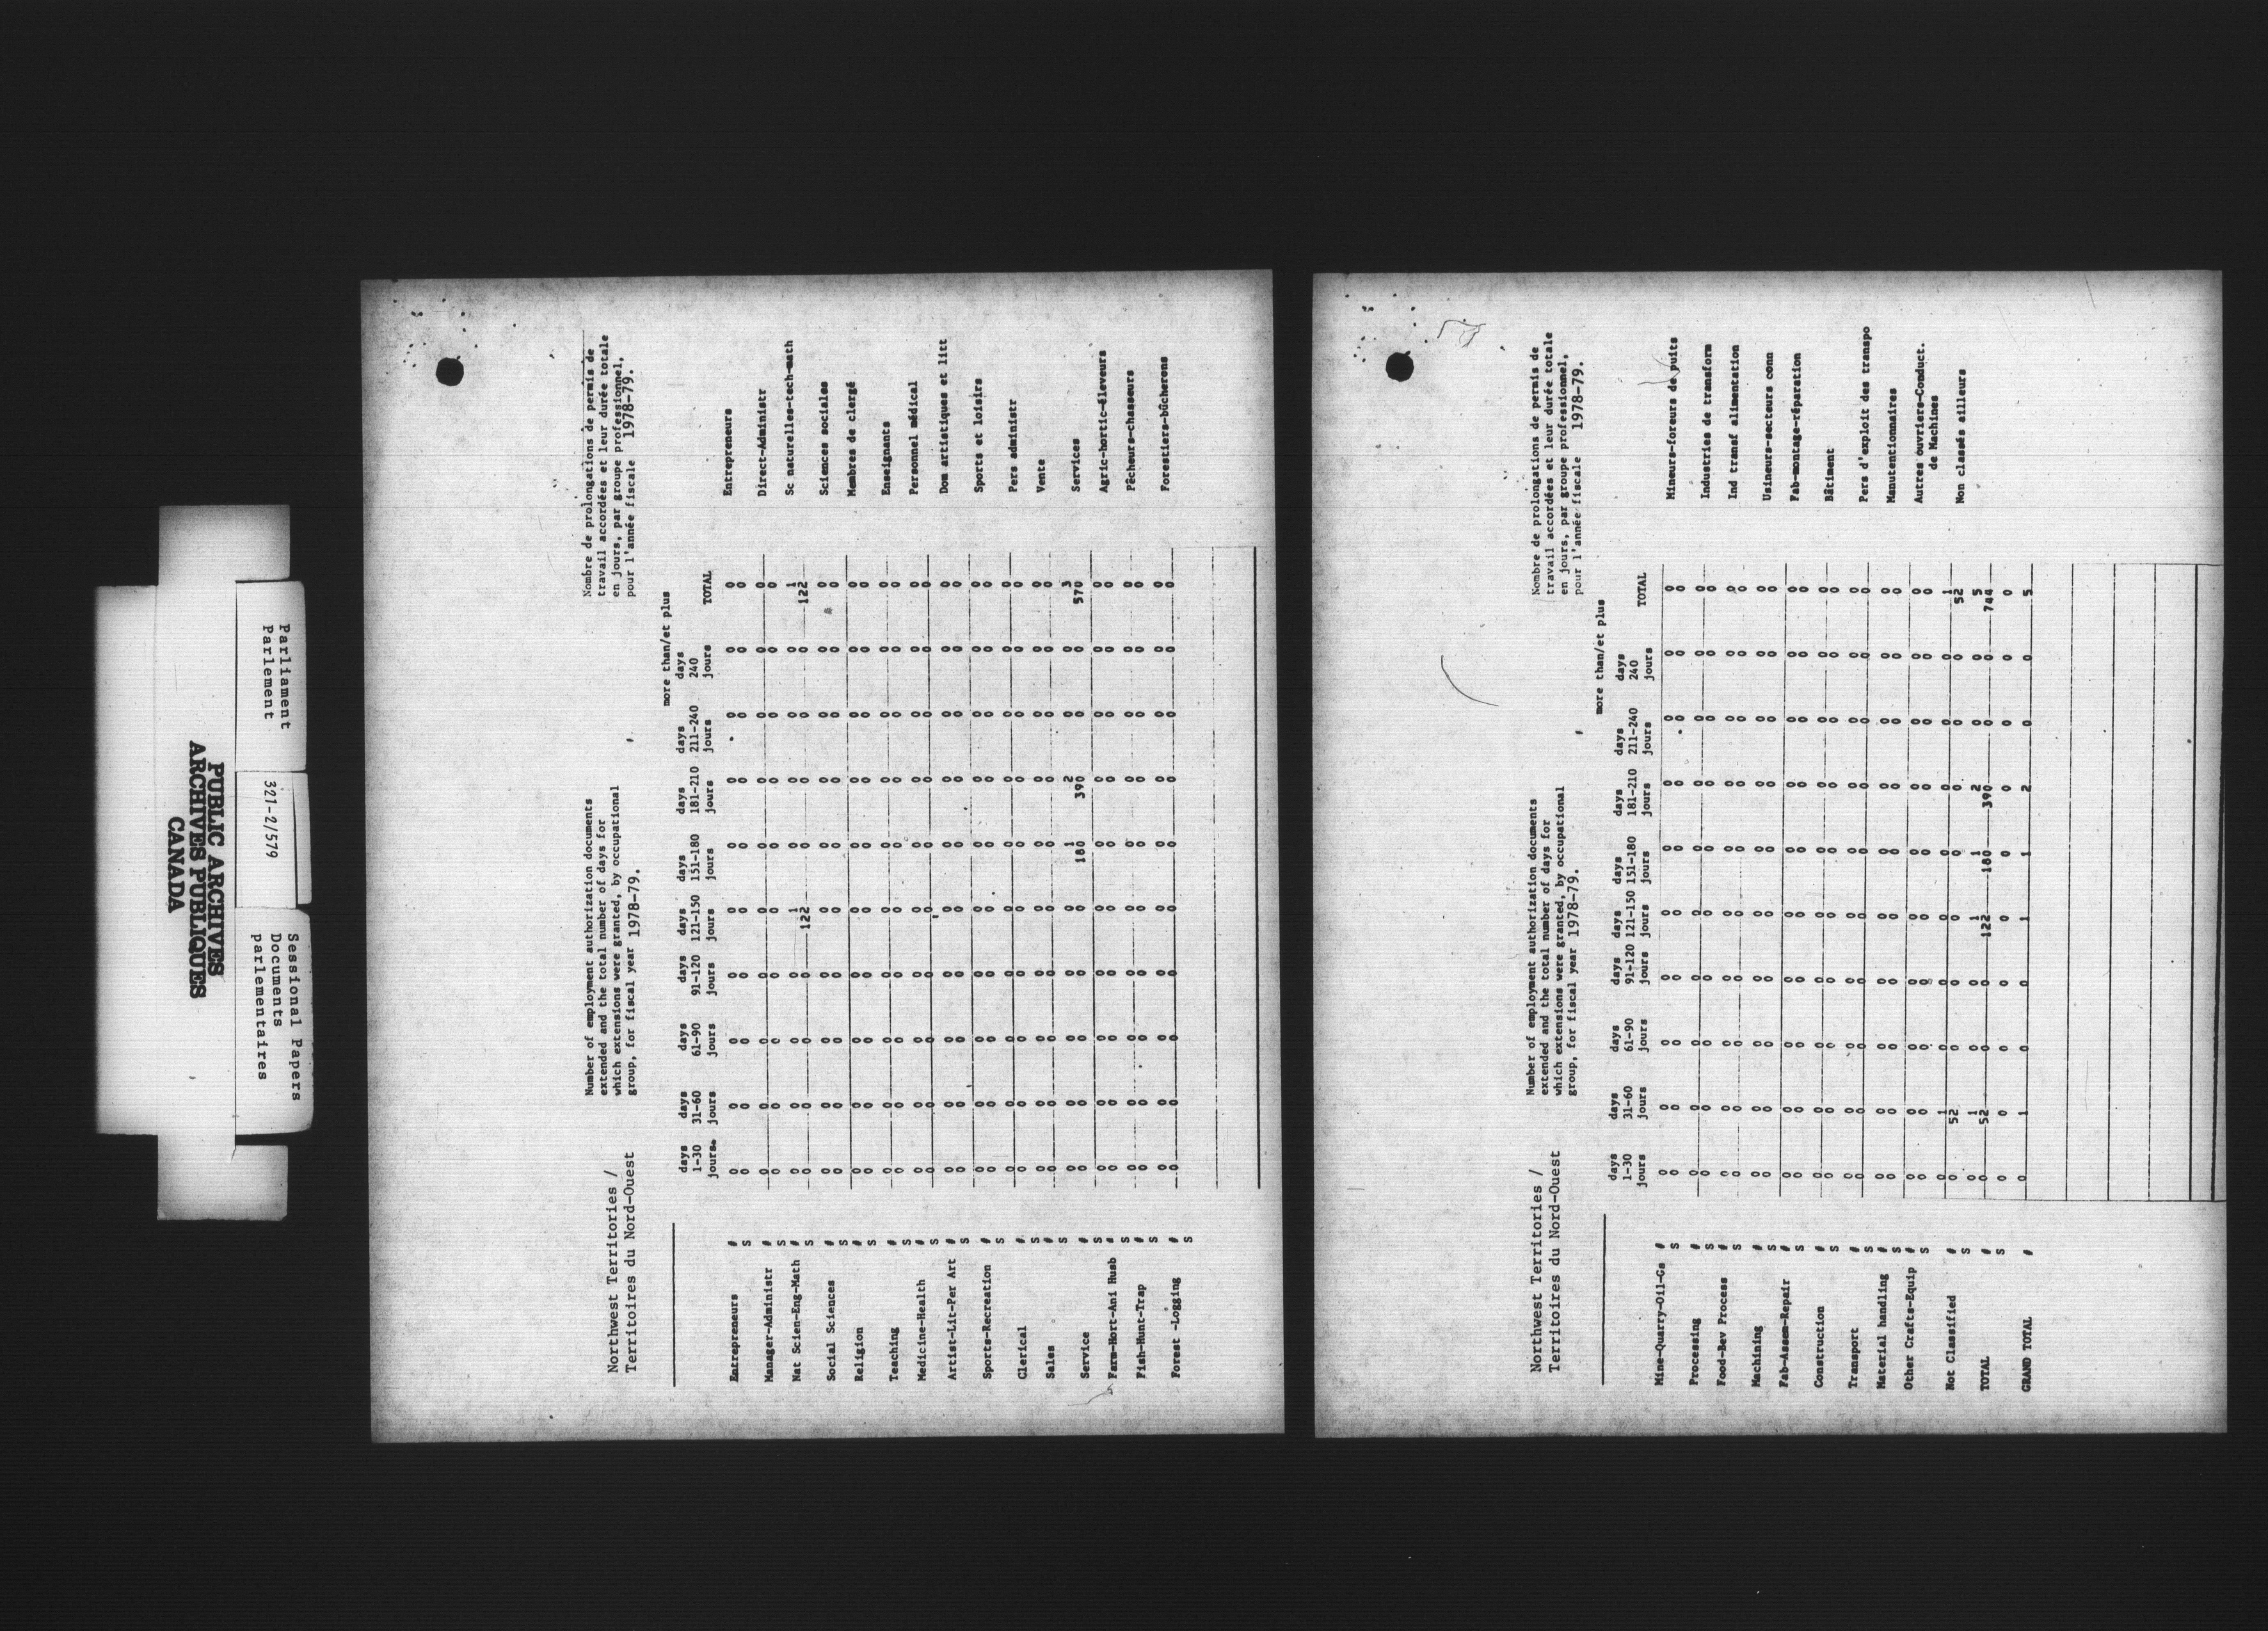 PUBLIC ARCHIVES
ARCHIVES PUBLIQUES
CANADA
Parliament
Parlement
321-2/579
Sessional Papers
Documents
parlementaires
Northwest Territories /
Territoires du Nord-Ouest
Number of employment authorization documents
extended and the total number of days for
which extensions were granted, by occupational
group, for fiscal year 1978-79.
Nombre de prolongations de permis de
travail accordées et leur durée totale
en jours, par groupe professionnel,
pour l'année fiscale 1978-79.
more than/et plus
days days days days days days days days days
1-30 31-60 61-90 91-120 121-150 151-180 181-210 211-240 240 TOTAL
jours jours jours jours jours jours jours jours jours
Entrepreneurs # 0 0 0 0 0 0 0 0 0 0 Entrepreneurs
S 0 0 0 0 0 0 0 0 0 0
Manager-Administr # 0 0 0 0 0 0 0 0 0 0 Direct-Administr
S 0 0 0 0 0 0 0 0 0 0
Nat Scien-Eng-Math # 0 0 0 0 1 0 0 0 0 1 Sc naturelles-tech-math
S 0 0 0 0 122 0 0 0 0 122
Social Sciences # 0 0 0 0 0 0 0 0 0 0 Sciences sociales
S 0 0 0 0 0 0 0 0 0 0
Religion # 0 0 0 0 0 0 0 0 0 0 Membres de clergé
S 0 0 0 0 0 0 0 0 0 0
Teaching # 0 0 0 0 0 0 0 0 0 0 Enseignants
S 0 0 0 0 0 0 0 0 0 0
Medicine-Health # 0 0 0 0 0 0 0 0 0 0 Personnel médical
S 0 0 0 0 0 0 0 0 0 0
Artist-Lit-Per Art # 0 0 0 0 0 0 0 0 0 0 Dom artistiques et litt
S 0 0 0 0 0 0 0 0 0 0
Sports-Recreation # 0 0 0 0 0 0 0 0 0 0 Sports et loisirs
S 0 0 0 0 0 0 0 0 0 0
Clerical # 0 0 0 0 0 0 0 0 0 0 Pers administr
S 0 0 0 0 0 0 0 0 0 0
Sales # 0 0 0 0 0 0 0 0 0 0 Vente
S 0 0 0 0 0 0 0 0 0 0
Service # 0 0 0 0 0 1 2 0 0 3 Services
S 0 0 0 0 0 180 390 0 0 570
Farm-Hort-Ani Husb # 0 0 0 0 0 0 0 0 0 0 Agric-hortic-éleveurs
S 0 0 0 0 0 0 0 0 0 0
Fish-Hunt-Trap # 0 0 0 0 0 0 0 0 0 0 Pêcheurs-chasseurs
S 0 0 0 0 0 0 0 0 0 0
Forest -Logging # 0 0 0 0 0 0 0 0 0 0 Forestiers-bûcherons
S 0 0 0 0 0 0 0 0 0 0
Northwest Territories /
Territoires du Nord-Ouest
Number of employment authorization documents
extended and the total number of days for
which extensions were granted, by occupational
group, for fiscal year 1978-79.
Nombre de prolongations de permis de
travail accordées et leur durée totale
en jours, par groupe professionnel,
pour l'année fiscale 1978-79.
more than/et plus
days days days days days days days days days
1-30 31-60 61-90 91-120 121-150 151-180 181-210 211-240 240 TOTAL
jours jours jours jours jours jours jours jours jours
Mine-Quarry-Oil-Gs # 0 0 0 0 0 0 0 0 0 0 Mineurs-foreurs de puits
S 0 0 0 0 0 0 0 0 0 0
Processing # 0 0 0 0 0 0 0 0 0 0 Industries de transform
S 0 0 0 0 0 0 0 0 0 0
Food-Bev Process # 0 0 0 0 0 0 0 0 0 0 Ind transf alimentation
S 0 0 0 0 0 0 0 0 0 0
Machining # 0 0 0 0 0 0 0 0 0 0 Usineurs-secteurs conn
S 0 0 0 0 0 0 0 0 0 0
Fab-Assem-Repair # 0 0 0 0 0 0 0 0 0 0 Fab-montage-réparation
S 0 0 0 0 0 0 0 0 0 0
Construction # 0 0 0 0 0 0 0 0 0 0 Bâtiment
S 0 0 0 0 0 0 0 0 0 0
Transport # 0 0 0 0 0 0 0 0 0 0 Pers d'exploit des transpo
S 0 0 0 0 0 0 0 0 0 0
Material handling # 0 0 0 0 0 0 0 0 0 0 Manutentionnaires
S 0 0 0 0 0 0 0 0 0 0
Other Crafts-Equip # 0 0 0 0 0 0 0 0 0 0 Autres ouvriers-Conduct.
S 0 0 0 0 0 0 0 0 0 0 de Machines
Not Classified # 0 1 0 0 0 0 0 0 0 1 Non classés ailleurs
S 0 52 0 0 0 0 0 0 0 52
TOTAL # 0 1 0 0 1 1 2 0 0 5
S 0 52 0 0 122 180 390 0 0 744
0 0 0 0 0 0 0 0 0 0
GRAND TOTAL # 0 1 0 0 1 1 2 0 0 5